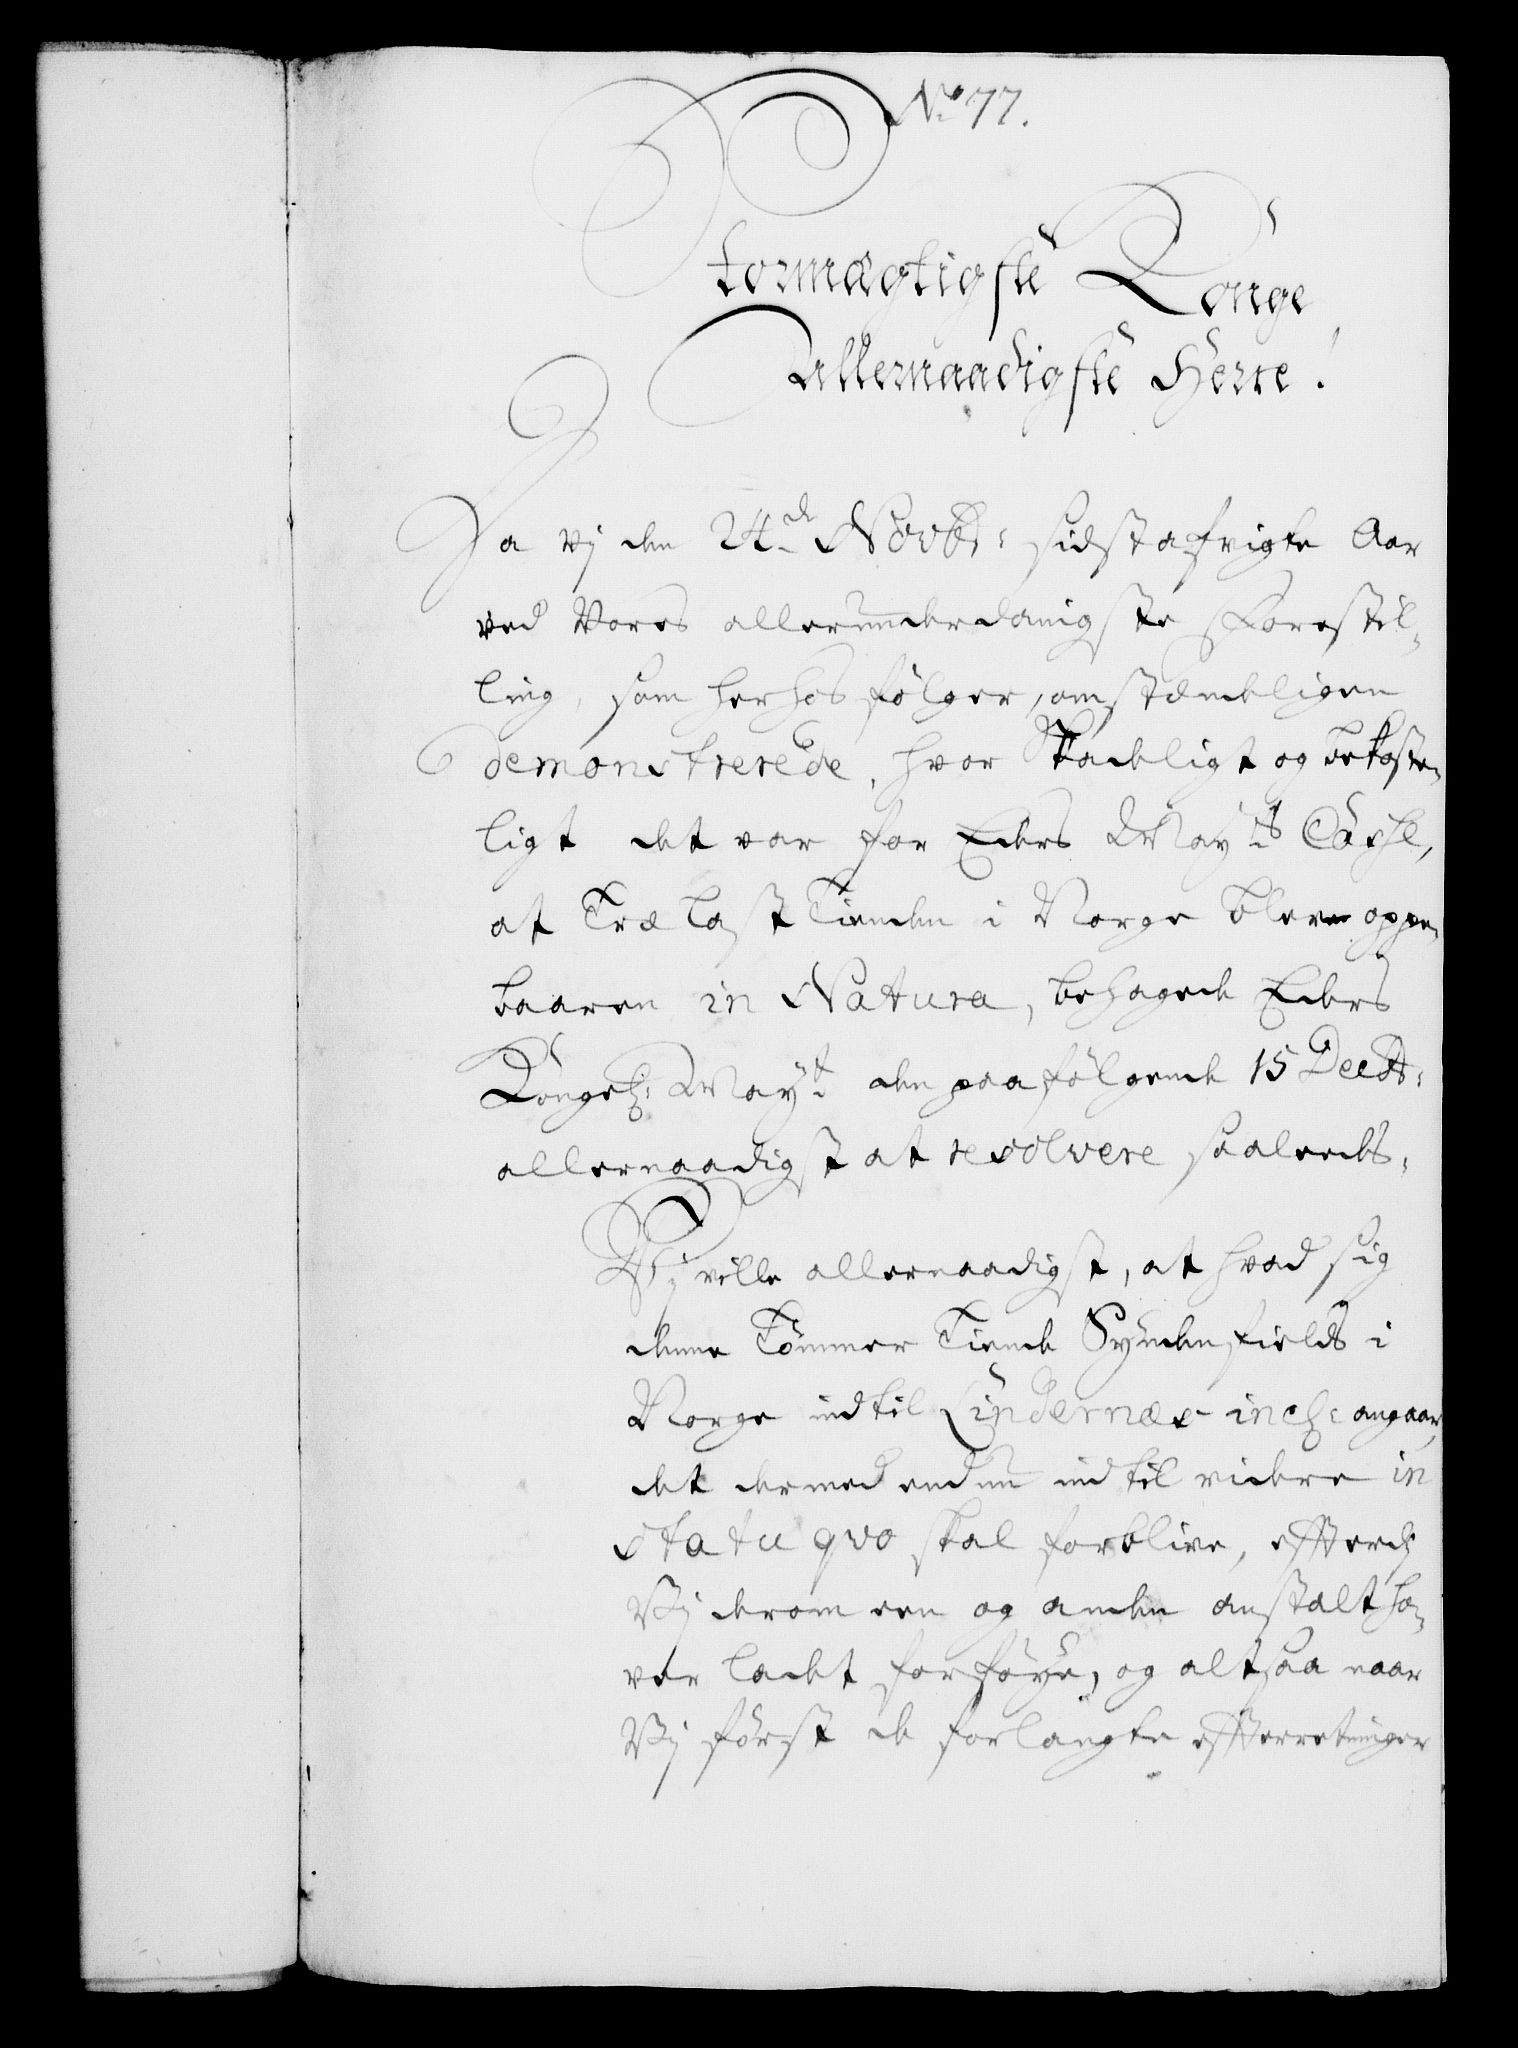 No 77.
Stormægtigste Konge
Allernaadigste Herre!
Da Vj den 24de Novbr: sidstafvigte Aar
ved Vores allerunderdanigste Forestil-
ling, som herhos følger, omstændeligen
demonstrerede, hvor skadeligt og bekoste-
ligt det var for Eders Mayts Casse,
at Træ Last Tienden i Norge bleve oppe-
baaren in Natura, behagede Eders
Kongel: Mayt den paafølgende 15 Decbr:
allernaadigst at resolvere saaleedes,
Vj ville allernaadigst, at hvad sig
denne Tømmer Tiende Syndenfields i
Norge indtil Lindernæs incl: angaar,
det dermed endnu indtil videre in
statu qvo skal forblive, efterdj
Vj derom een og anden anstalt ha-
ver ladet forføye, og altsaa naar
Vj først de forlangte efterretninger